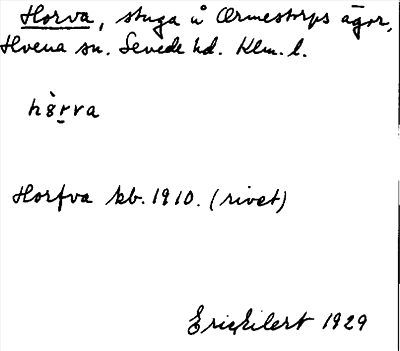 Horva, stuga å Ormestorps ägor,
Hvena sn. Sevede hd. Klm. l.
hò̱rva
Horfva kb. 1910. (rivet)
Eric Eilert 1929